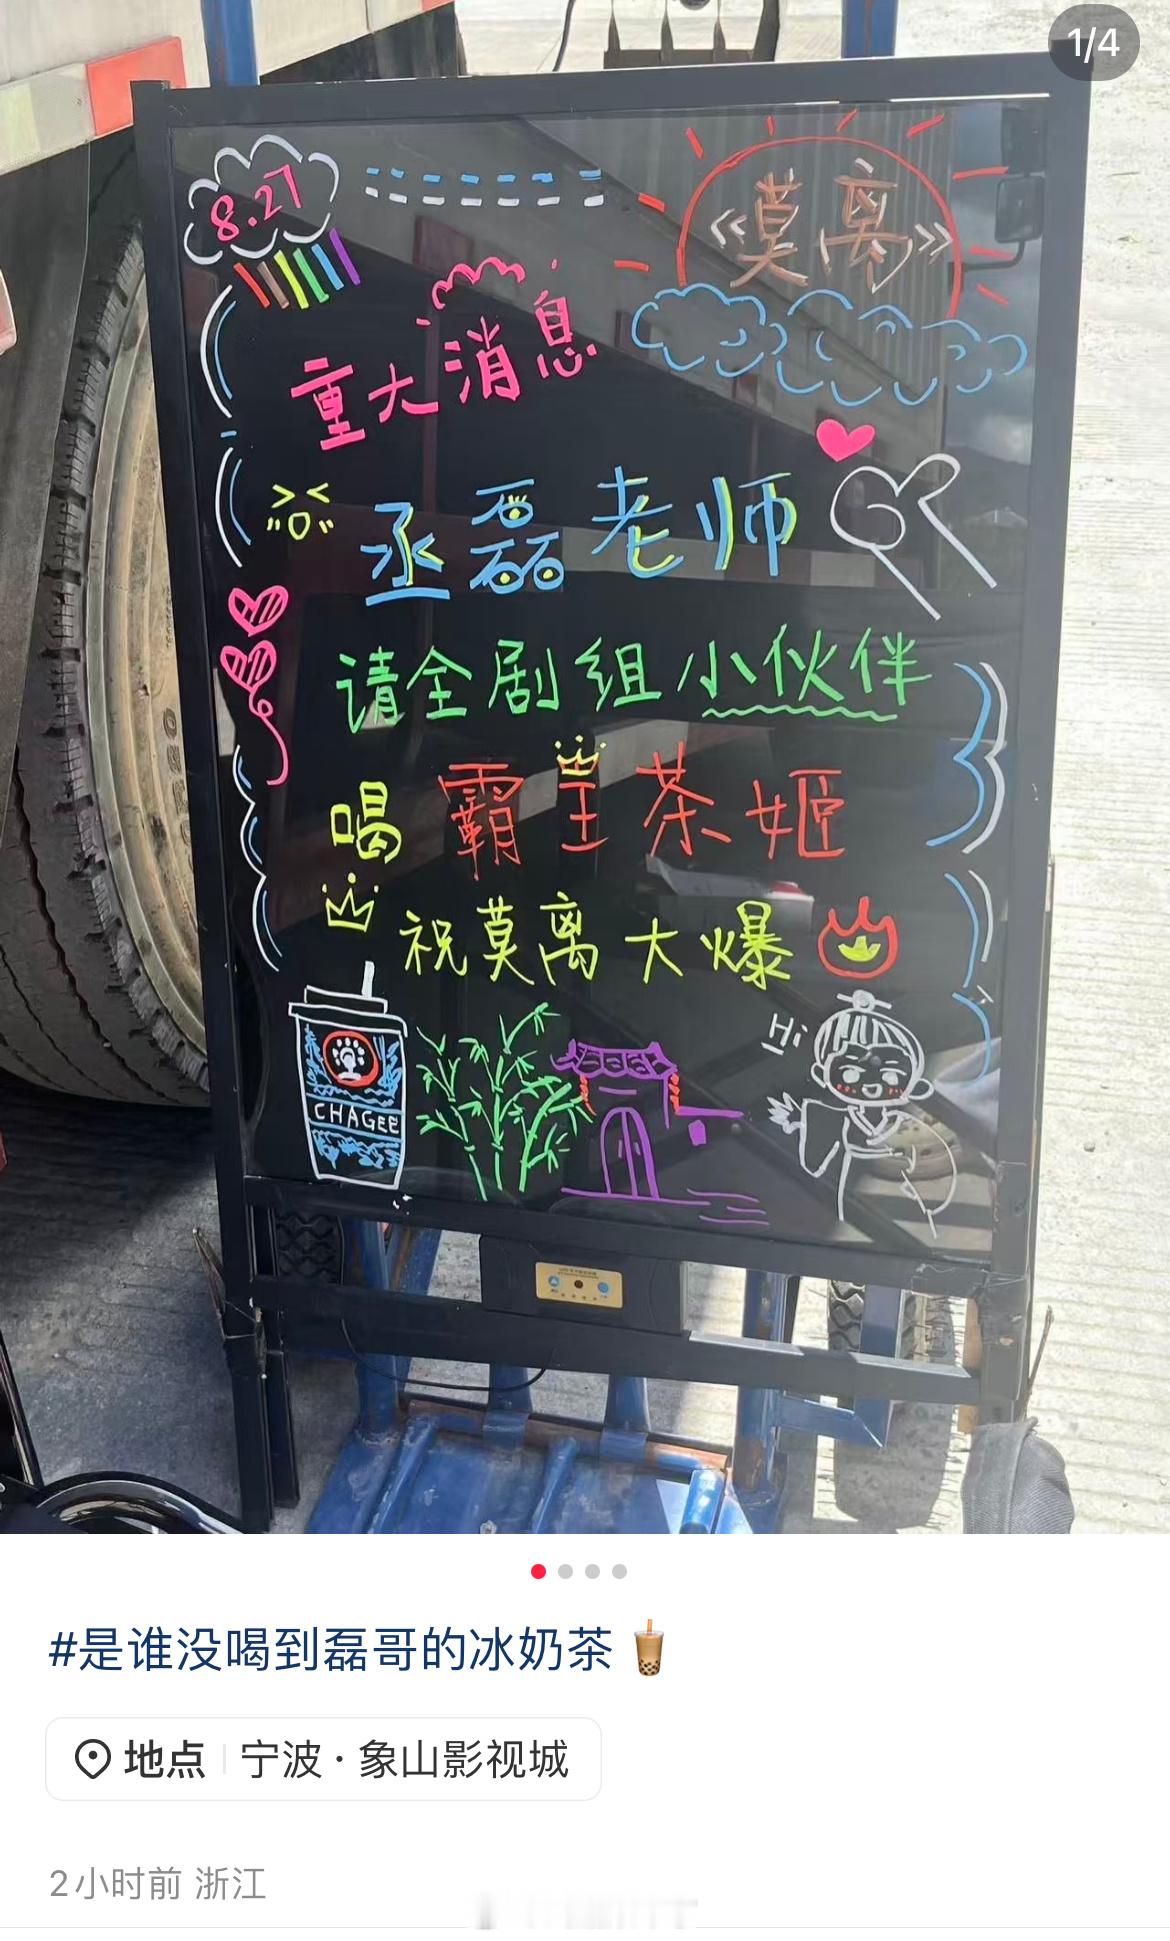 1/4
8.27
《莫离》
重大消息
丞磊老师
请全剧组小伙伴
喝霸王茶姬
祝莫离大爆
Hi
CHAGEE
#是谁没喝到磊哥的冰奶茶
地点 宁波·象山影视城
2小时前 浙江